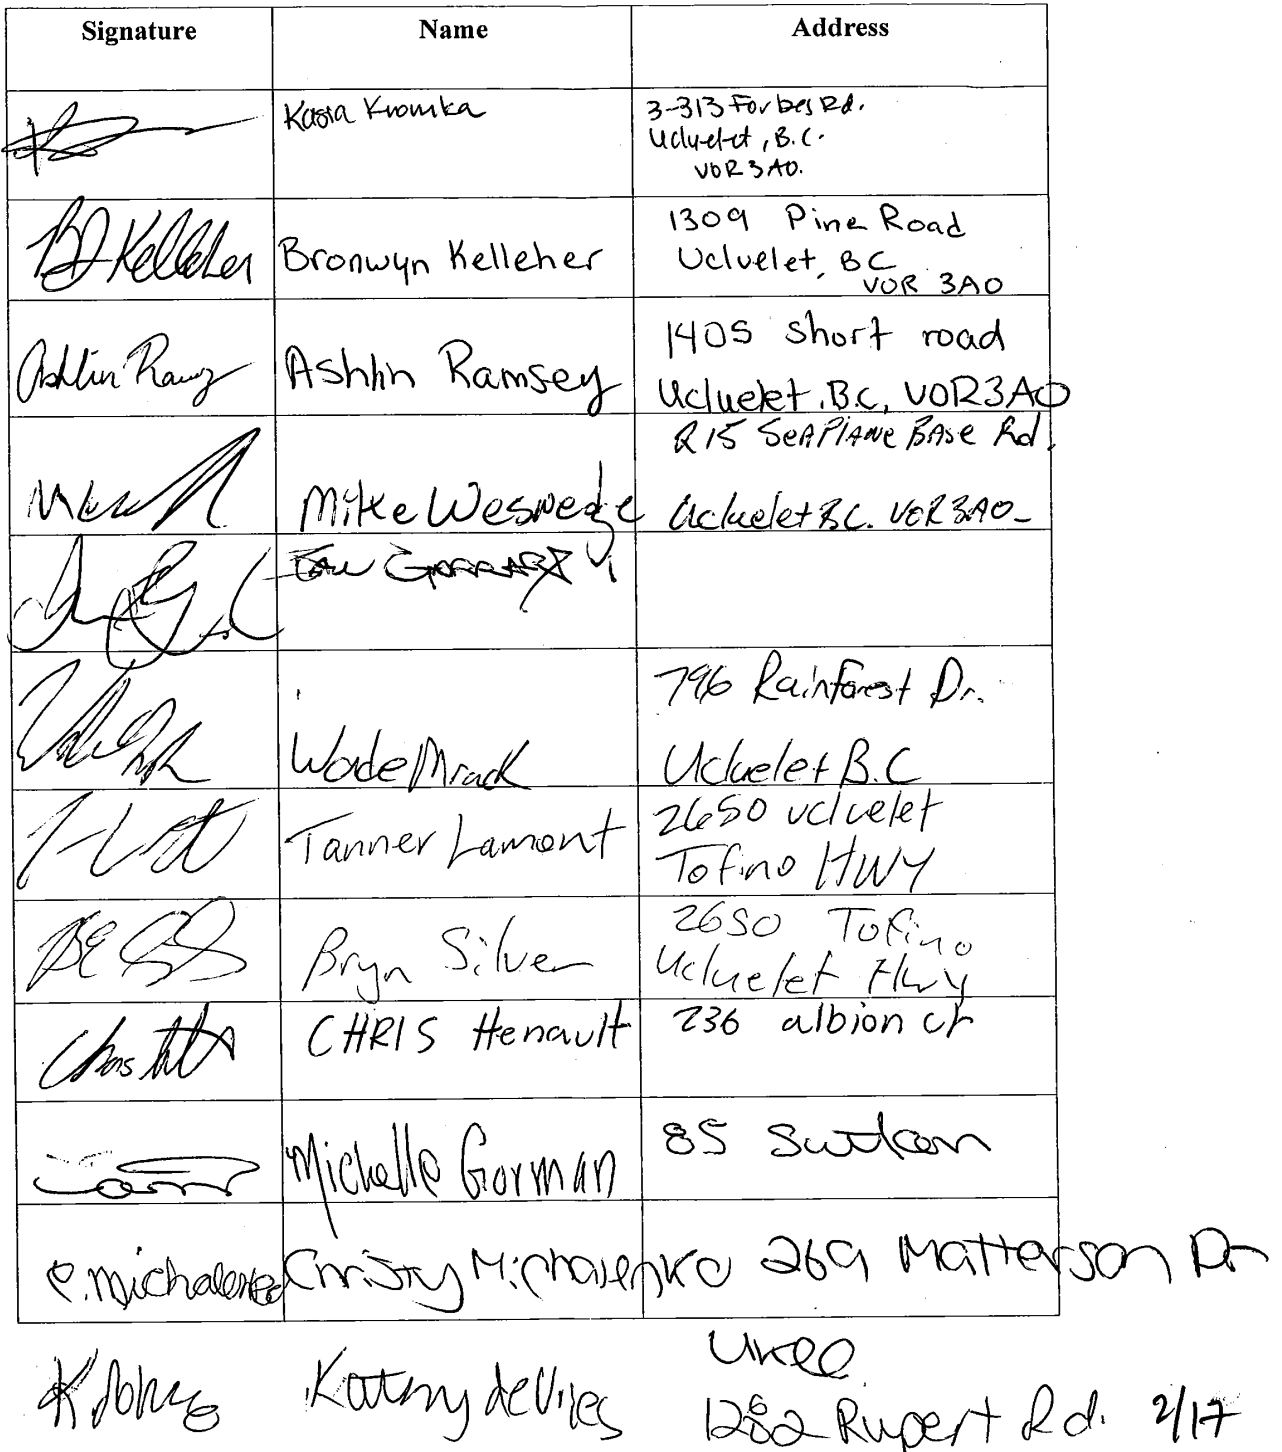 Signature Name Address
Kasia Kromka 3-313 Forbes Rd.
Ucluelet, B.C.
V0R 3A0.
BJ Kelleher Bronwyn Kelleher 1309 Pine Road
Ucluelet, BC
V0R 3A0
Ashlin Ramsey 1405 short road
Ucluelet, B.C, V0R3A0
215 SeAPlANe BAse Rd.
Mike Ucluelet B.C. V0R3A0-
IAN
796 Rainforest Dr.
Wade Mrack Ucluelet B.C
Tanner Lamont 2650 ucluelet
Tofino HWY
Bryn Silver 2650 Tofino
Ucluelet Hwy
CHRIS Henault 236 albion cr
Michelle Gorman 85
C. Michalenko Christy Michalenko 269 Matterson Dr
Ukee
Kathy deVries 1282 Rupert Rd. 2/17